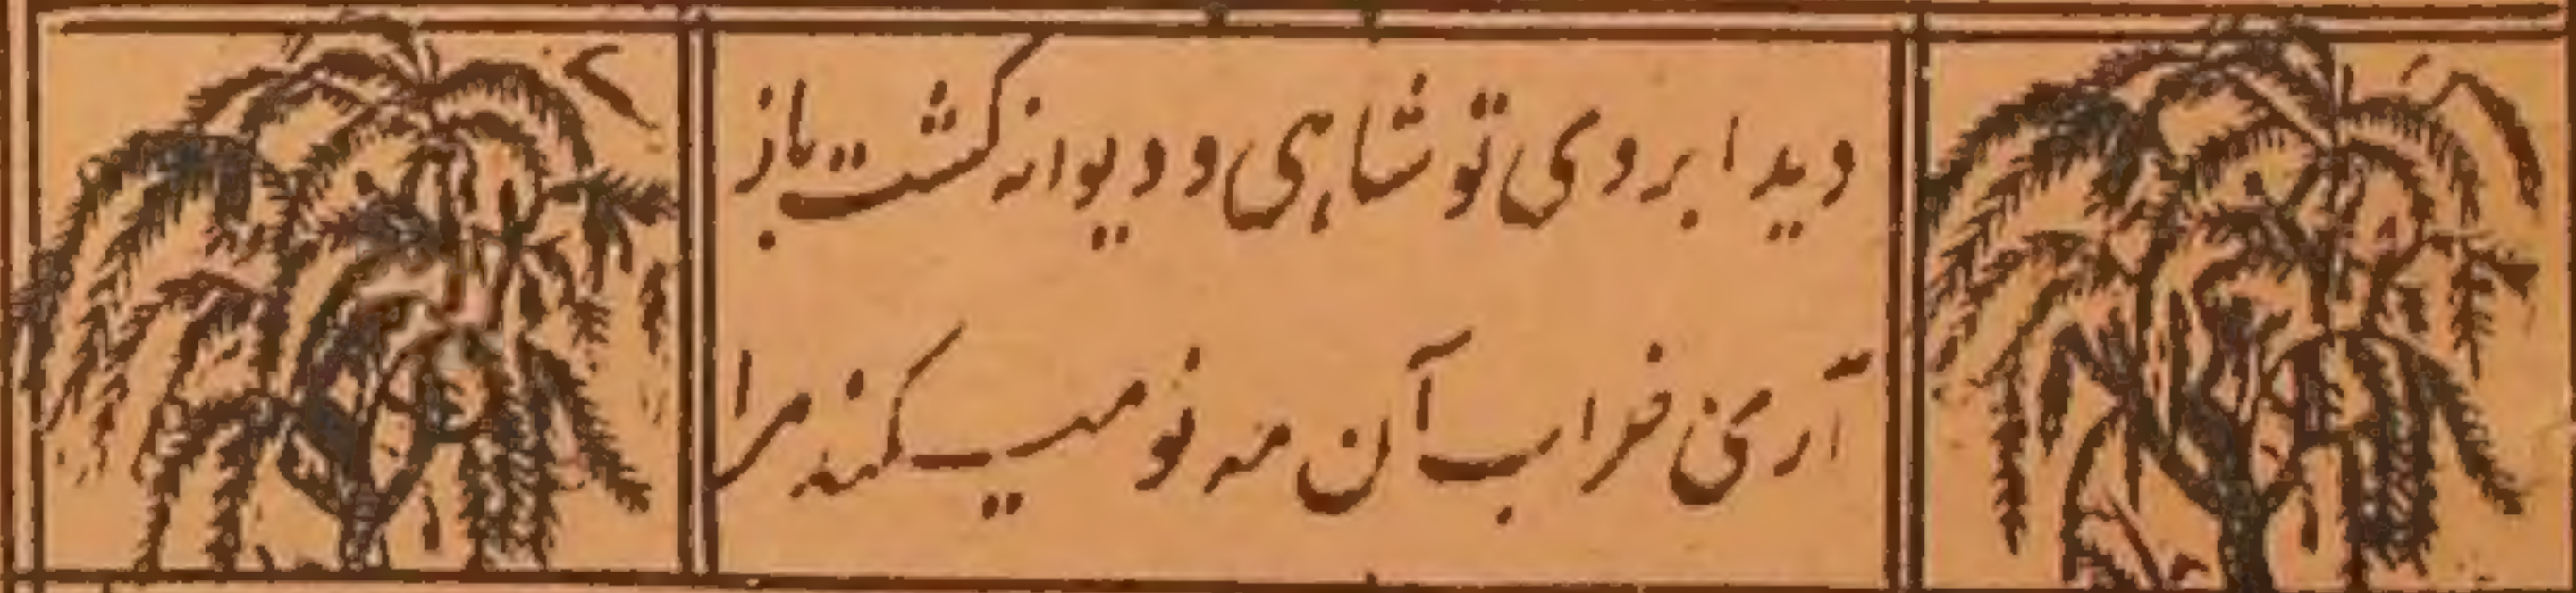 دید ابروی تو شاهی و دیوانه گشت باز
آری خراب آن مه نو میکند مرا